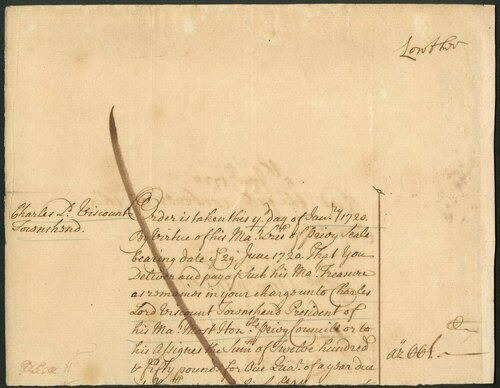 Lowther
Charles Ld. Viscount
Townshend.
Order is taken this day of Janry 1720.
By Virtue of his Mats. Writ of Privy Seale
bearing date ye 29 June 1720. That You
Deliver and pay of Such his Mats Treasure
as remains in your charge unto Charles
Lord Viscount Townshend President of
his Mats Most Honble Privy Councill or to
his Assignes the Sum of Twelve hundred
& fifty pounds for One Quar of a year due